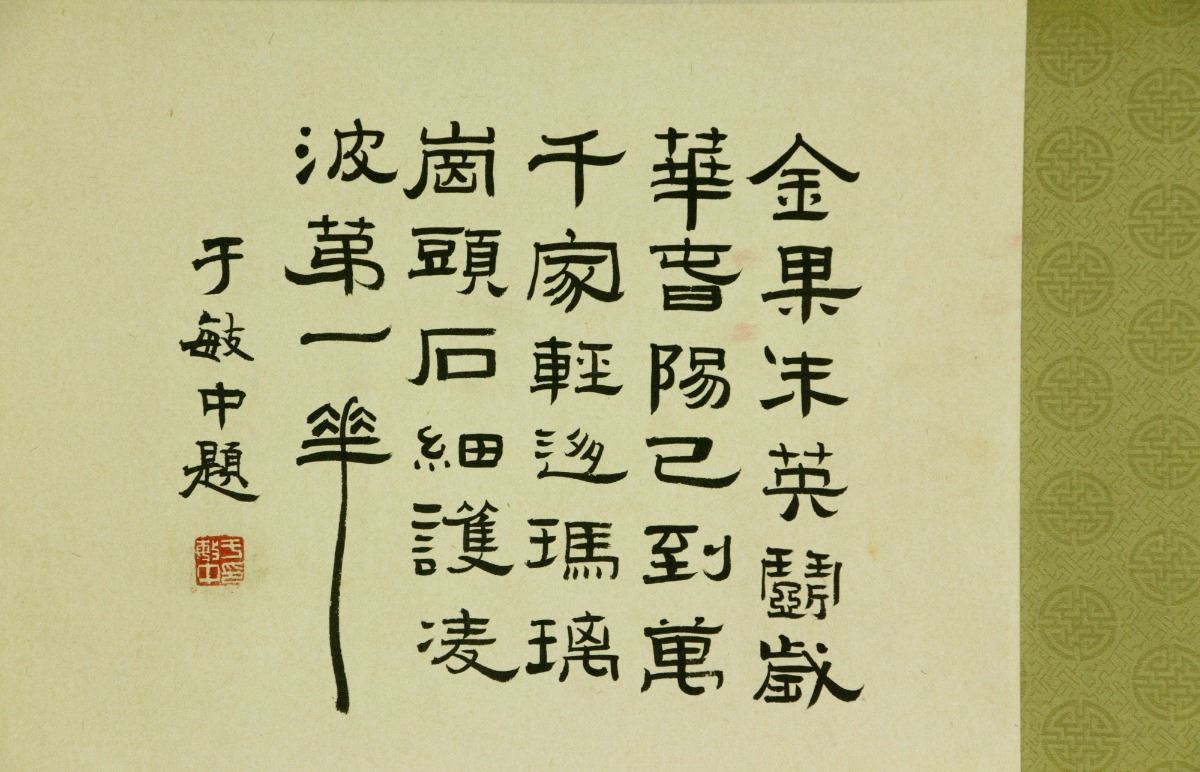 金果朱英鬭歲
華旾陽已到萬
千家輕迻瑪瑙
崗頭石細護凌
波苐一華
于敏中題
于敏中印